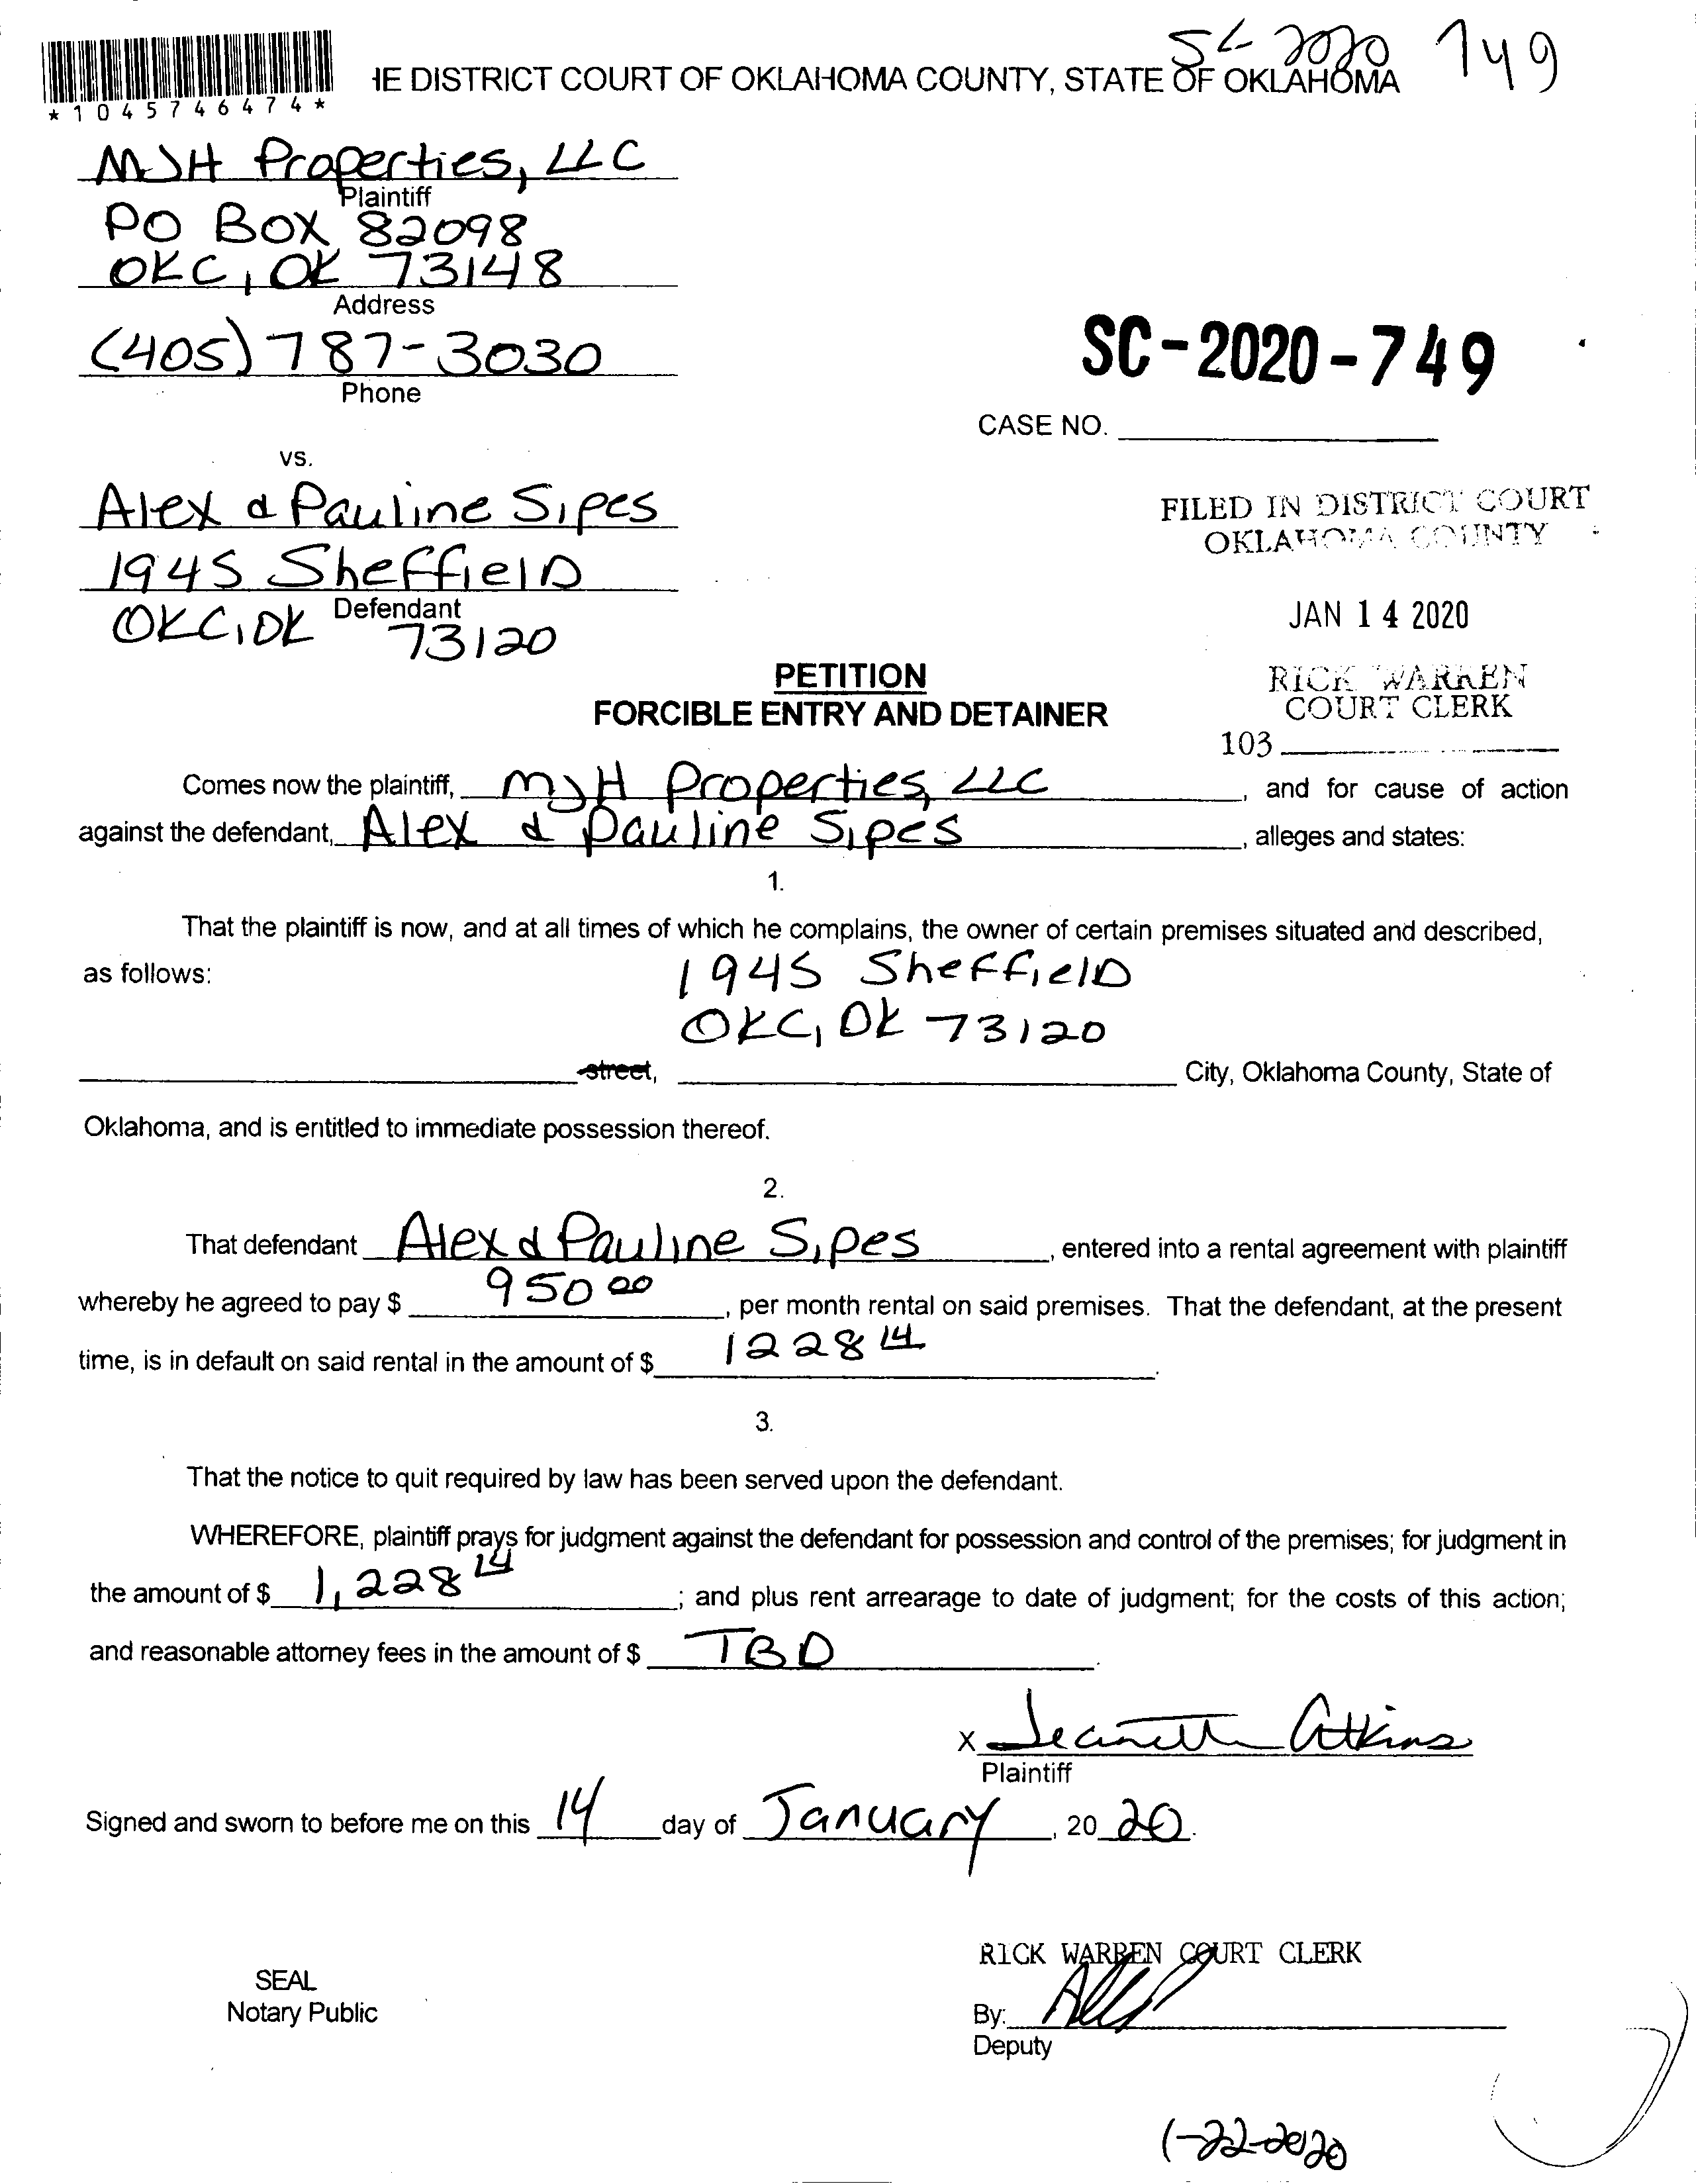 SC 2020 749
*1045746474*
IE DISTRICT COURT OF OKLAHOMA COUNTY, STATE OF OKLAHOMA
MJH Properties, LLC
Plaintiff
PO BOX 82098
OKC, OK 73148
Address
(405) 787-3030
Phone
SC-2020-749
CASE NO.
vs.
Alex & Pauline Sipes
1945 Sheffield
Defendant
OKC, OK 73120
FILED IN DISTRICT COURT
OKLAHOMA COUNTY
JAN 14 2020
RICK WARREN
COURT CLERK
103
PETITION
FORCIBLE ENTRY AND DETAINER
Comes now the plaintiff, MJH Properties, LLC, and for cause of action
against the defendant, Alex & Pauline Sipes, alleges and states:
1.
That the plaintiff is now, and at all times of which he complains, the owner of certain premises situated and described,
as follows: 1945 Sheffield
OKC, OK 73120
street, City, Oklahoma County, State of
Oklahoma, and is entitled to immediate possession thereof.
2.
That defendant Alex & Pauline Sipes, entered into a rental agreement with plaintiff
whereby he agreed to pay $ 950 00, per month rental on said premises. That the defendant, at the present
time, is in default on said rental in the amount of $ 1228 14.
3.
That the notice to quit required by law has been served upon the defendant.
WHEREFORE, plaintiff prays for judgment against the defendant for possession and control of the premises; for judgment in
the amount of $ 1,228 14; and plus rent arrearage to date of judgment; for the costs of this action;
and reasonable attorney fees in the amount of $ TBD.
X Jeanett Atkins
Plaintiff
Signed and sworn to before me on this 14 day of January, 20 20.
RICK WARREN COURT CLERK
SEAL
Notary Public
By:
Deputy
1-22-2020